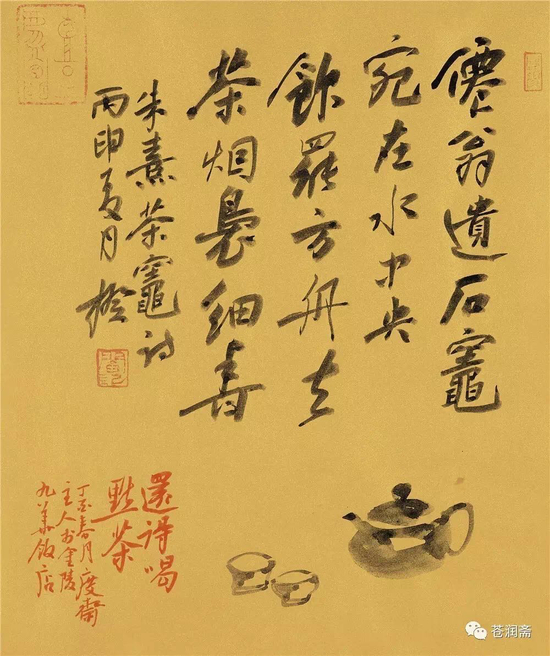 僊翁遺石竈
宛在水中央
飲罷方舟去
茶烟裊細香
朱熹茶竈诗
丙申夏月
還得喝
點茶
丁酉春月度齋
主人书金陵
九華飯店
苍润斋